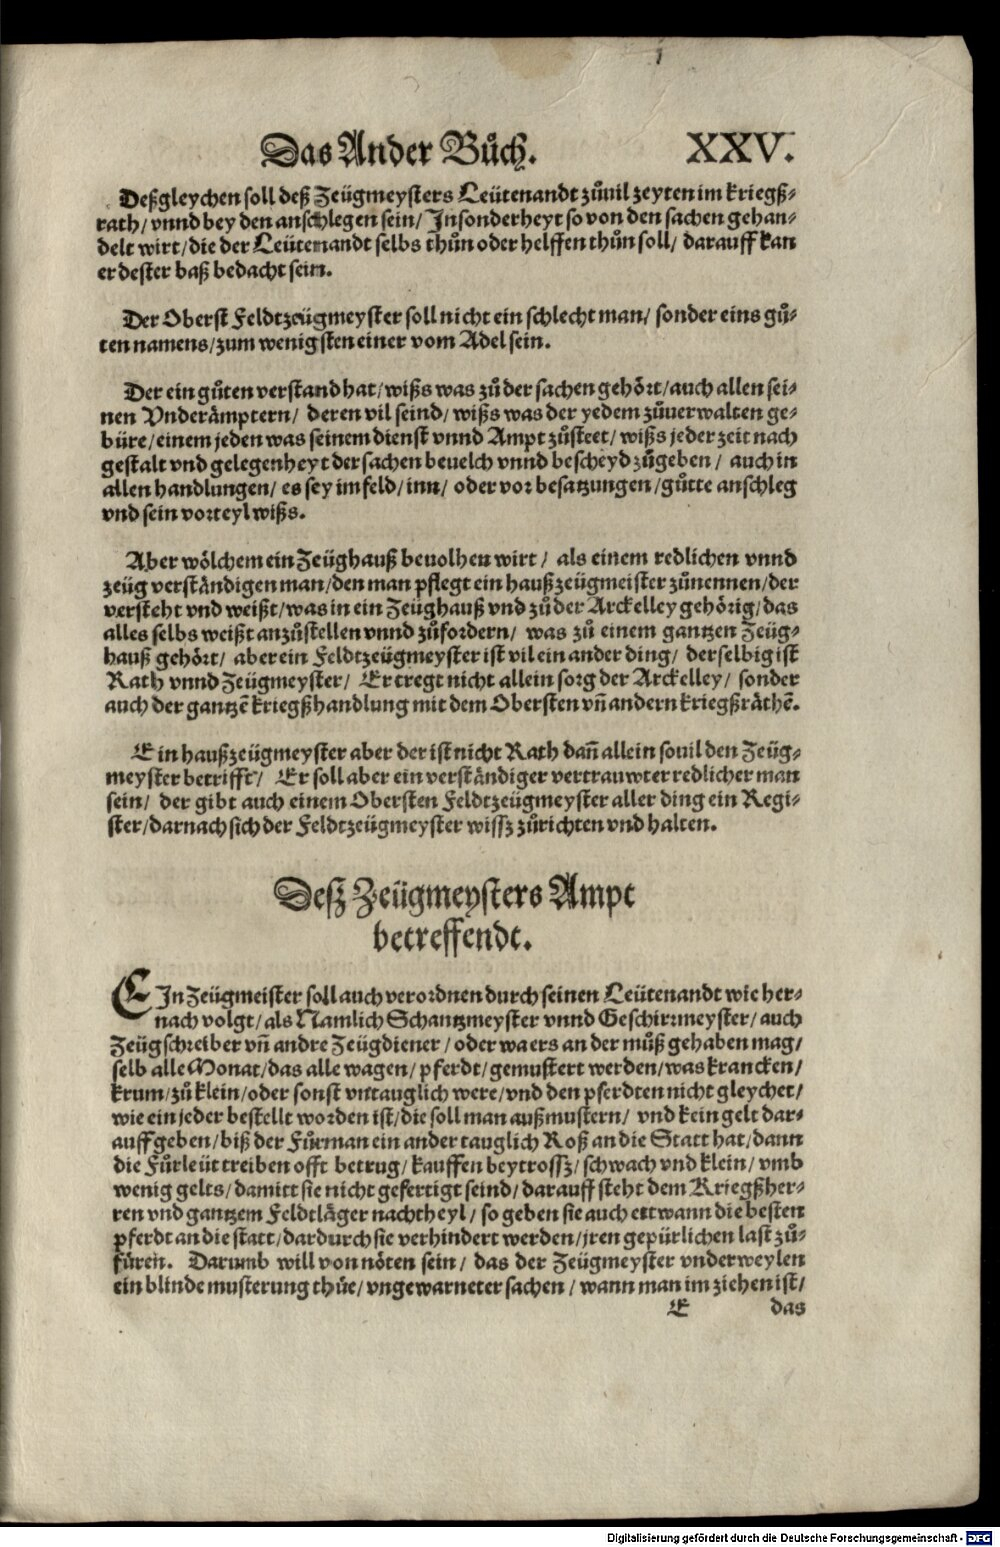 Das Ander Bůch. XXV.
Deßgleychen soll deß Zeügmeysters Leütenandt zůuil zeyten im kriegß⸗
rath/ vnnd bey den anschlegen sein/ Jnsonderheyt so von den sachen gehan⸗
delt wirt/ die der Leütenandt selbs thůn oder helffen thůn soll/ darauff kan
er dester baß bedacht sein.
Der Oberst Feldtzeügmeyster soll nicht ein schlecht man/ sonder eins gů⸗
ten namens/ zum wenigsten einer vom Adel sein.
Der ein gůten verstand hat/ wißs was zů der sachen gehört/ auch allen sei⸗
nen Vnderämptern/ deren vil seind/ wißs was der yedem zůuerwalten ge⸗
büre/ einem jeden was seinem dienst vnnd Ampt zůsteet/ wißs jeder zeit nach
gestalt vnd gelegenheyt der sachen beuelch vnnd bescheyd zůgeben/ auch in
allen handlungen/ es sey im feld/ inn/ oder vor besatzungen/ gůtte anschleg
vnd sein vorteyl wißs.
Aber wölchem ein Zeüghauß beuolhen wirt/ als einem redlichen vnnd
zeüg verständigen man/ den man pflegt ein hauß zeügmeister zůnennen/ der
versteht vnd weißt/ was in ein Zeüghauß vnd zů der Arckelley gehörig/ das
alles selbs weißt anzůstellen vnnd zůfordern/ was zů einem gantzen Zeüg⸗
hauß gehört/ aber ein Feldtzeügmeyster ist vil ein ander ding/ derselbig ist
Rath vnnd Zeügmeyster/ Er tregt nicht allein sorg der Arckelley/ sonder
auch der gantzē kriegßhandlung mit dem Obersten vñ andern kriegßräthē.
Ein haußzeügmeyster aber der ist nicht Rath dañ allein souil den Zeüg⸗
meyster betrifft/ Er soll aber ein verständiger vertrauwter redlicher man
sein/ der gibt auch einem Obersten Feldtzeügmeyster aller ding ein Regi⸗
ster/ darnach sich der Feldtzeügmeyster wissz zůrichten vnd halten.
Desz Zeügmeysters Ampt
betreffendt.
EJn Zeügmeister soll auch verordnen durch seinen Leütenandt wie her⸗
nach volgt/ als Namlich Schantzmeyster vnnd Geschirrmeyster/ auch
Zeügschreiber vñ andre Zeügdiener/ oder wa ers an der můß gehaben mag/
selb alle Monat/ das alle wagen/ pferdt/ gemustert werden/ was krancken/
krum/ zů klein/ oder sonst vntauglich were/ vnd den pferdten nicht gleychet/
wie ein jeder bestellt worden ist/ die soll man außmustern/ vnd kein gelt dar⸗
auff geben/ biß der Fůrman ein ander tauglich Roß an die Statt hat/ dann
die Fůrleüt treiben offt betrug/ kauffen beytrossz/ schwach vnd klein/ vmb
wenig gelts/ damitt sie nicht gefertigt seind/ darauff steht dem Kriegßher⸗
ren vnd gantzem Feldtläger nachtheyl/ so geben sie auch ettwann die besten
pferdt an die statt/ dardurch sie verhindert werden/ jren gepürlichen last zů⸗
füren. Darumb will von nöten sein/ das der Zeügmeyster vnderweylen
ein blinde musterung thüe/ vngewarneter sachen/ wann man im ziehen ist/
E das
Digitalisierung gefördert durch die Deutsche Forschungsgemeinschaft - DFG